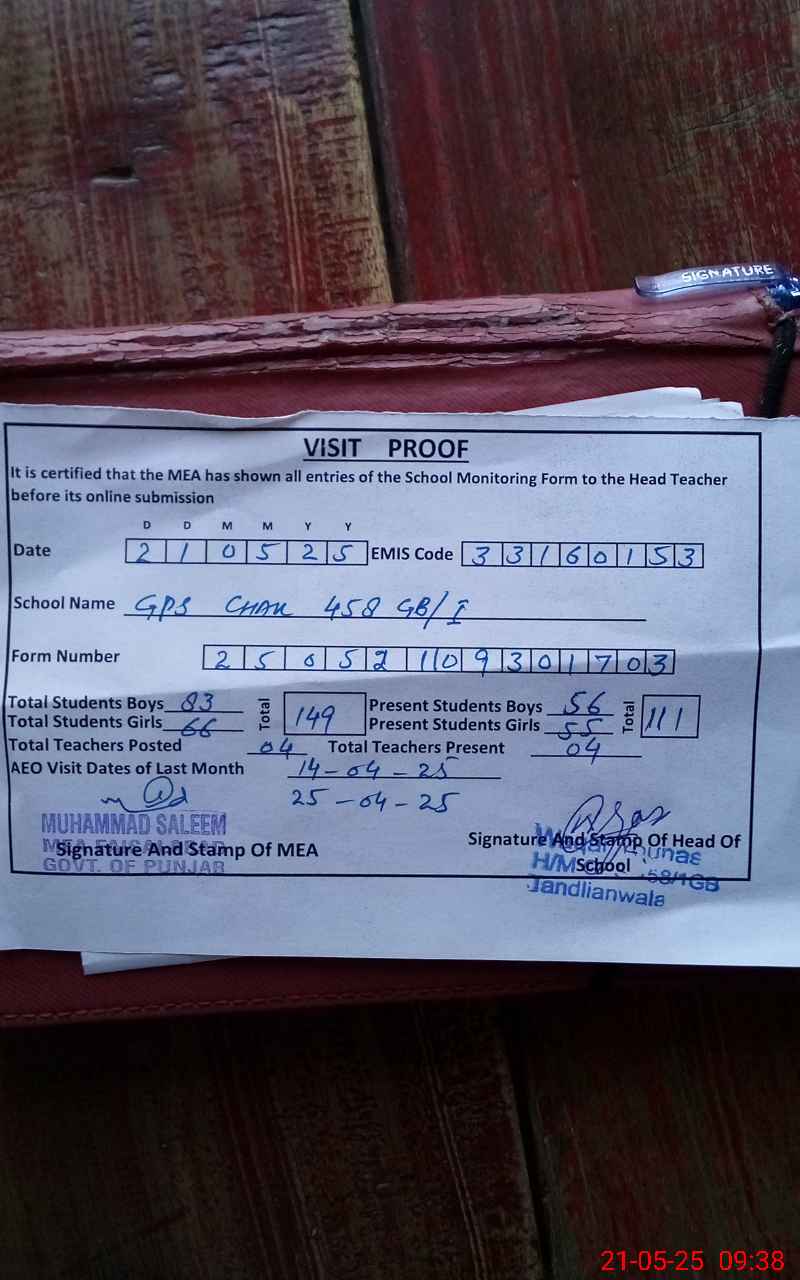 SIGNATURE
VISIT PROOF
It is certified that the MEA has shown all entries of the School Monitoring Form to the Head Teacher
before its online submission
D D M M Y Y
Date 2 1 0 5 2 5 EMIS Code 3 3 1 6 0 1 5 3
School Name GPS CHAK 458 GB/I
Form Number 2 5 0 5 2 1 0 9 3 0 1 7 0 3
Total Students Boys 83 Total 149 Present Students Boys 56 Total 111
Total Students Girls 66 Present Students Girls 55
Total Teachers Posted 04 Total Teachers Present 04
AEO Visit Dates of Last Month 14-04-25
25-04-25
MUHAMMAD SALEEM
Signature And Stamp Of MEA
GOVT. OF PUNJAB
Signature And Stamp Of Head Of
School
H/M 58/1GB
Jandlianwala
21-05-25 09:38